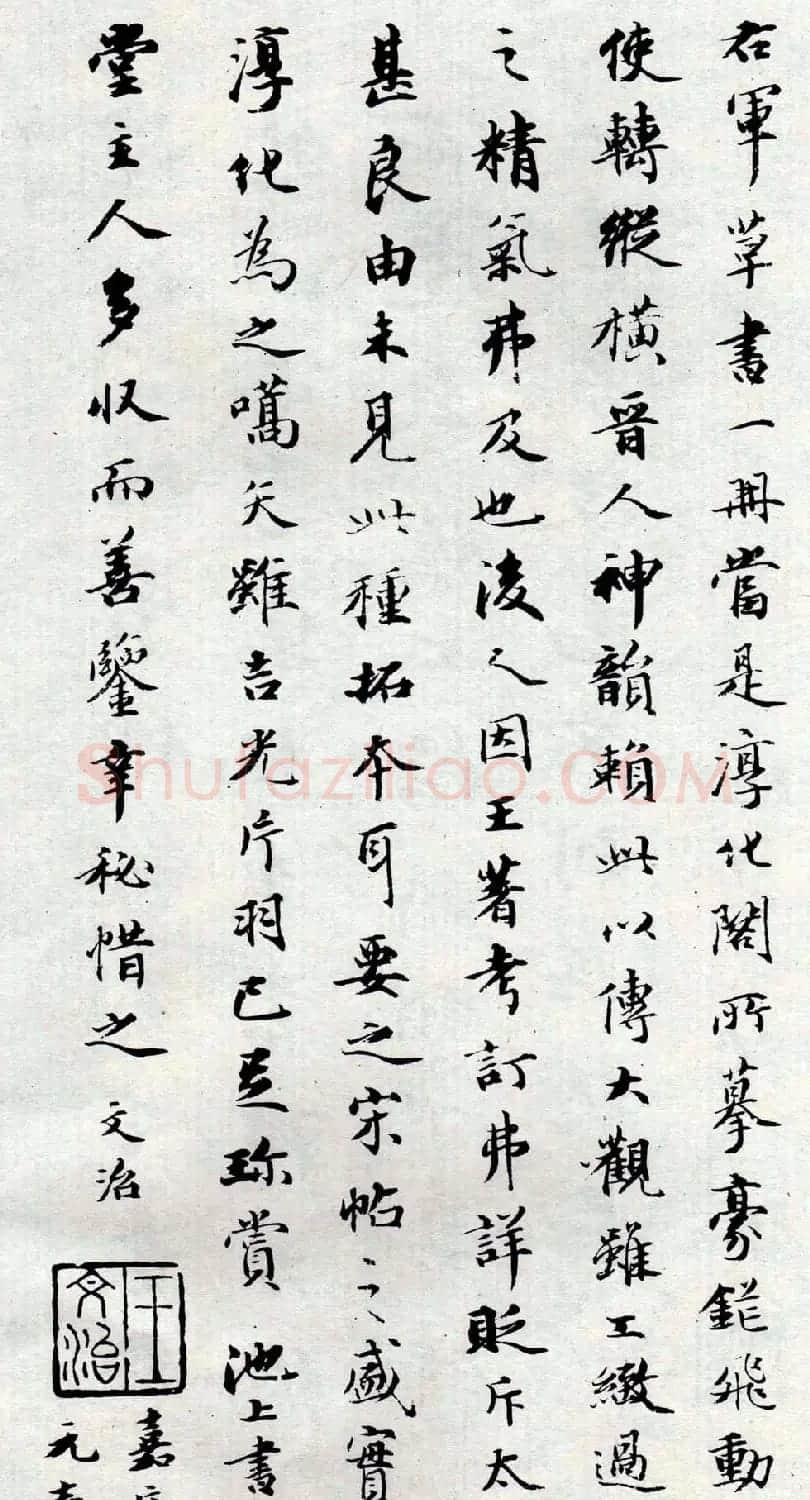 右軍草書一冊當是淳化閣所摹豪鋩飛動
使轉縱橫晉人神韻賴此以傳大觀雖工緻過
之精氣弗及也後人因王著考訂弗詳貶斥太
甚良由未見此種拓本耳要之宋帖之盛實
淳化為之嚆矢雖吉光片羽已足珎賞池上書
堂主人多収而善鑒幸秘惜之文治
王文治
嘉
元
ShufaZiliao.COM